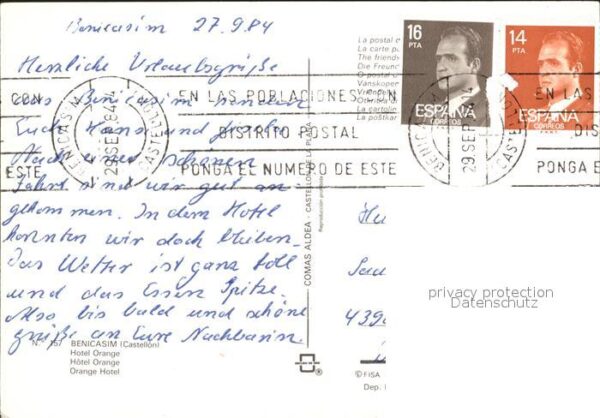 Benicasim 27.9.84
Herzliche Urlaubsgrüße
aus Benicasim senden
Euch Hans und
Nach einer schönen
Fahrt sind wir gut an-
gekommen. In dem Hotel
konnten wir doch bleiben.
Das Wetter ist ganz toll
und das Essen Spitze.
Also bis bald und schöne
grüße an Eure Nachbarin.
N.º 157 BENICASIM (Castellón)
Hotel Orange
Hôtel Orange
Orange Hotel
COMAS ALDEA - CASTELLON DE LA PLANA
La postal
La carte
The friend
Die Freun
O postal
Vanskoper
Vriend
La cartolin
La postkar
16 PTA
ESPAÑA
CORREOS
14 PTA
ESPAÑA
CORREOS
CON
ESTE
BENICASIM
(CASTELLON)
EN LAS POBLACIONES CON
DISTRITO POSTAL
PONGA EL NUMERO DE ESTE
BENICASIM
29 SEP
(CASTELLON)
EN LAS
DISTRI
PONGA E
439
privacy protection
Datenschutz
© FISA
Dep.